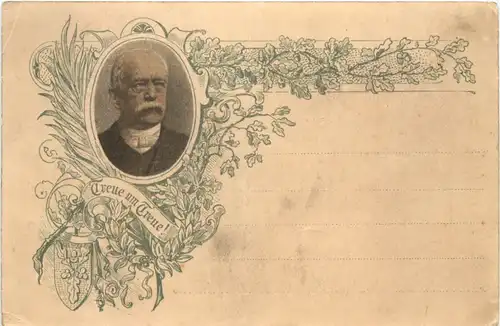 Treue um Treue!